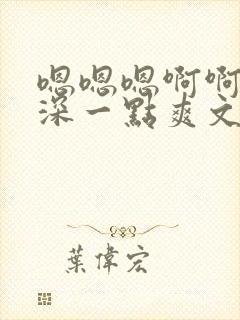 嗯嗯嗯啊啊
深一點爽文
葉偉宏